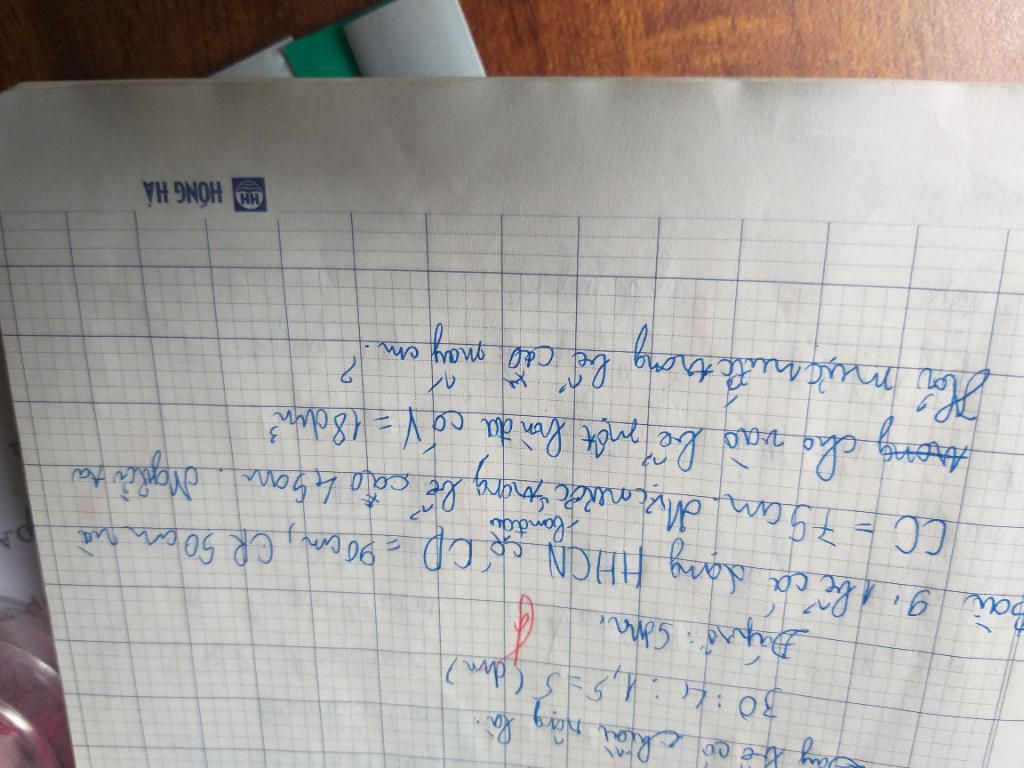 Đáy bể có chiều rộng là:
30 : 4 : 1,5 = 5 (dm)
Đáp số: 5dm.
Bài 9. 1 bể cá dạng HHCN có CD = 90cm, CR 50cm và
ban đầu
CC = 75cm. Mực nước trong bể cao 45cm. Người ta
trong cho vào bể một hòn đá có V = 18dm³
Hỏi mực nước trong bể cao mấy cm.?
HH HỒNG HÀ